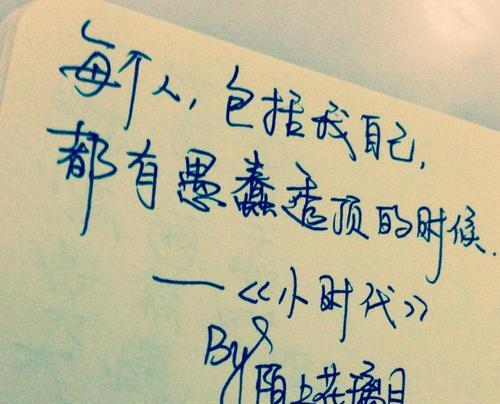 每个人,包括我自己,
都有愚蠢透顶的时候.
——《小时代》
By 陌上花